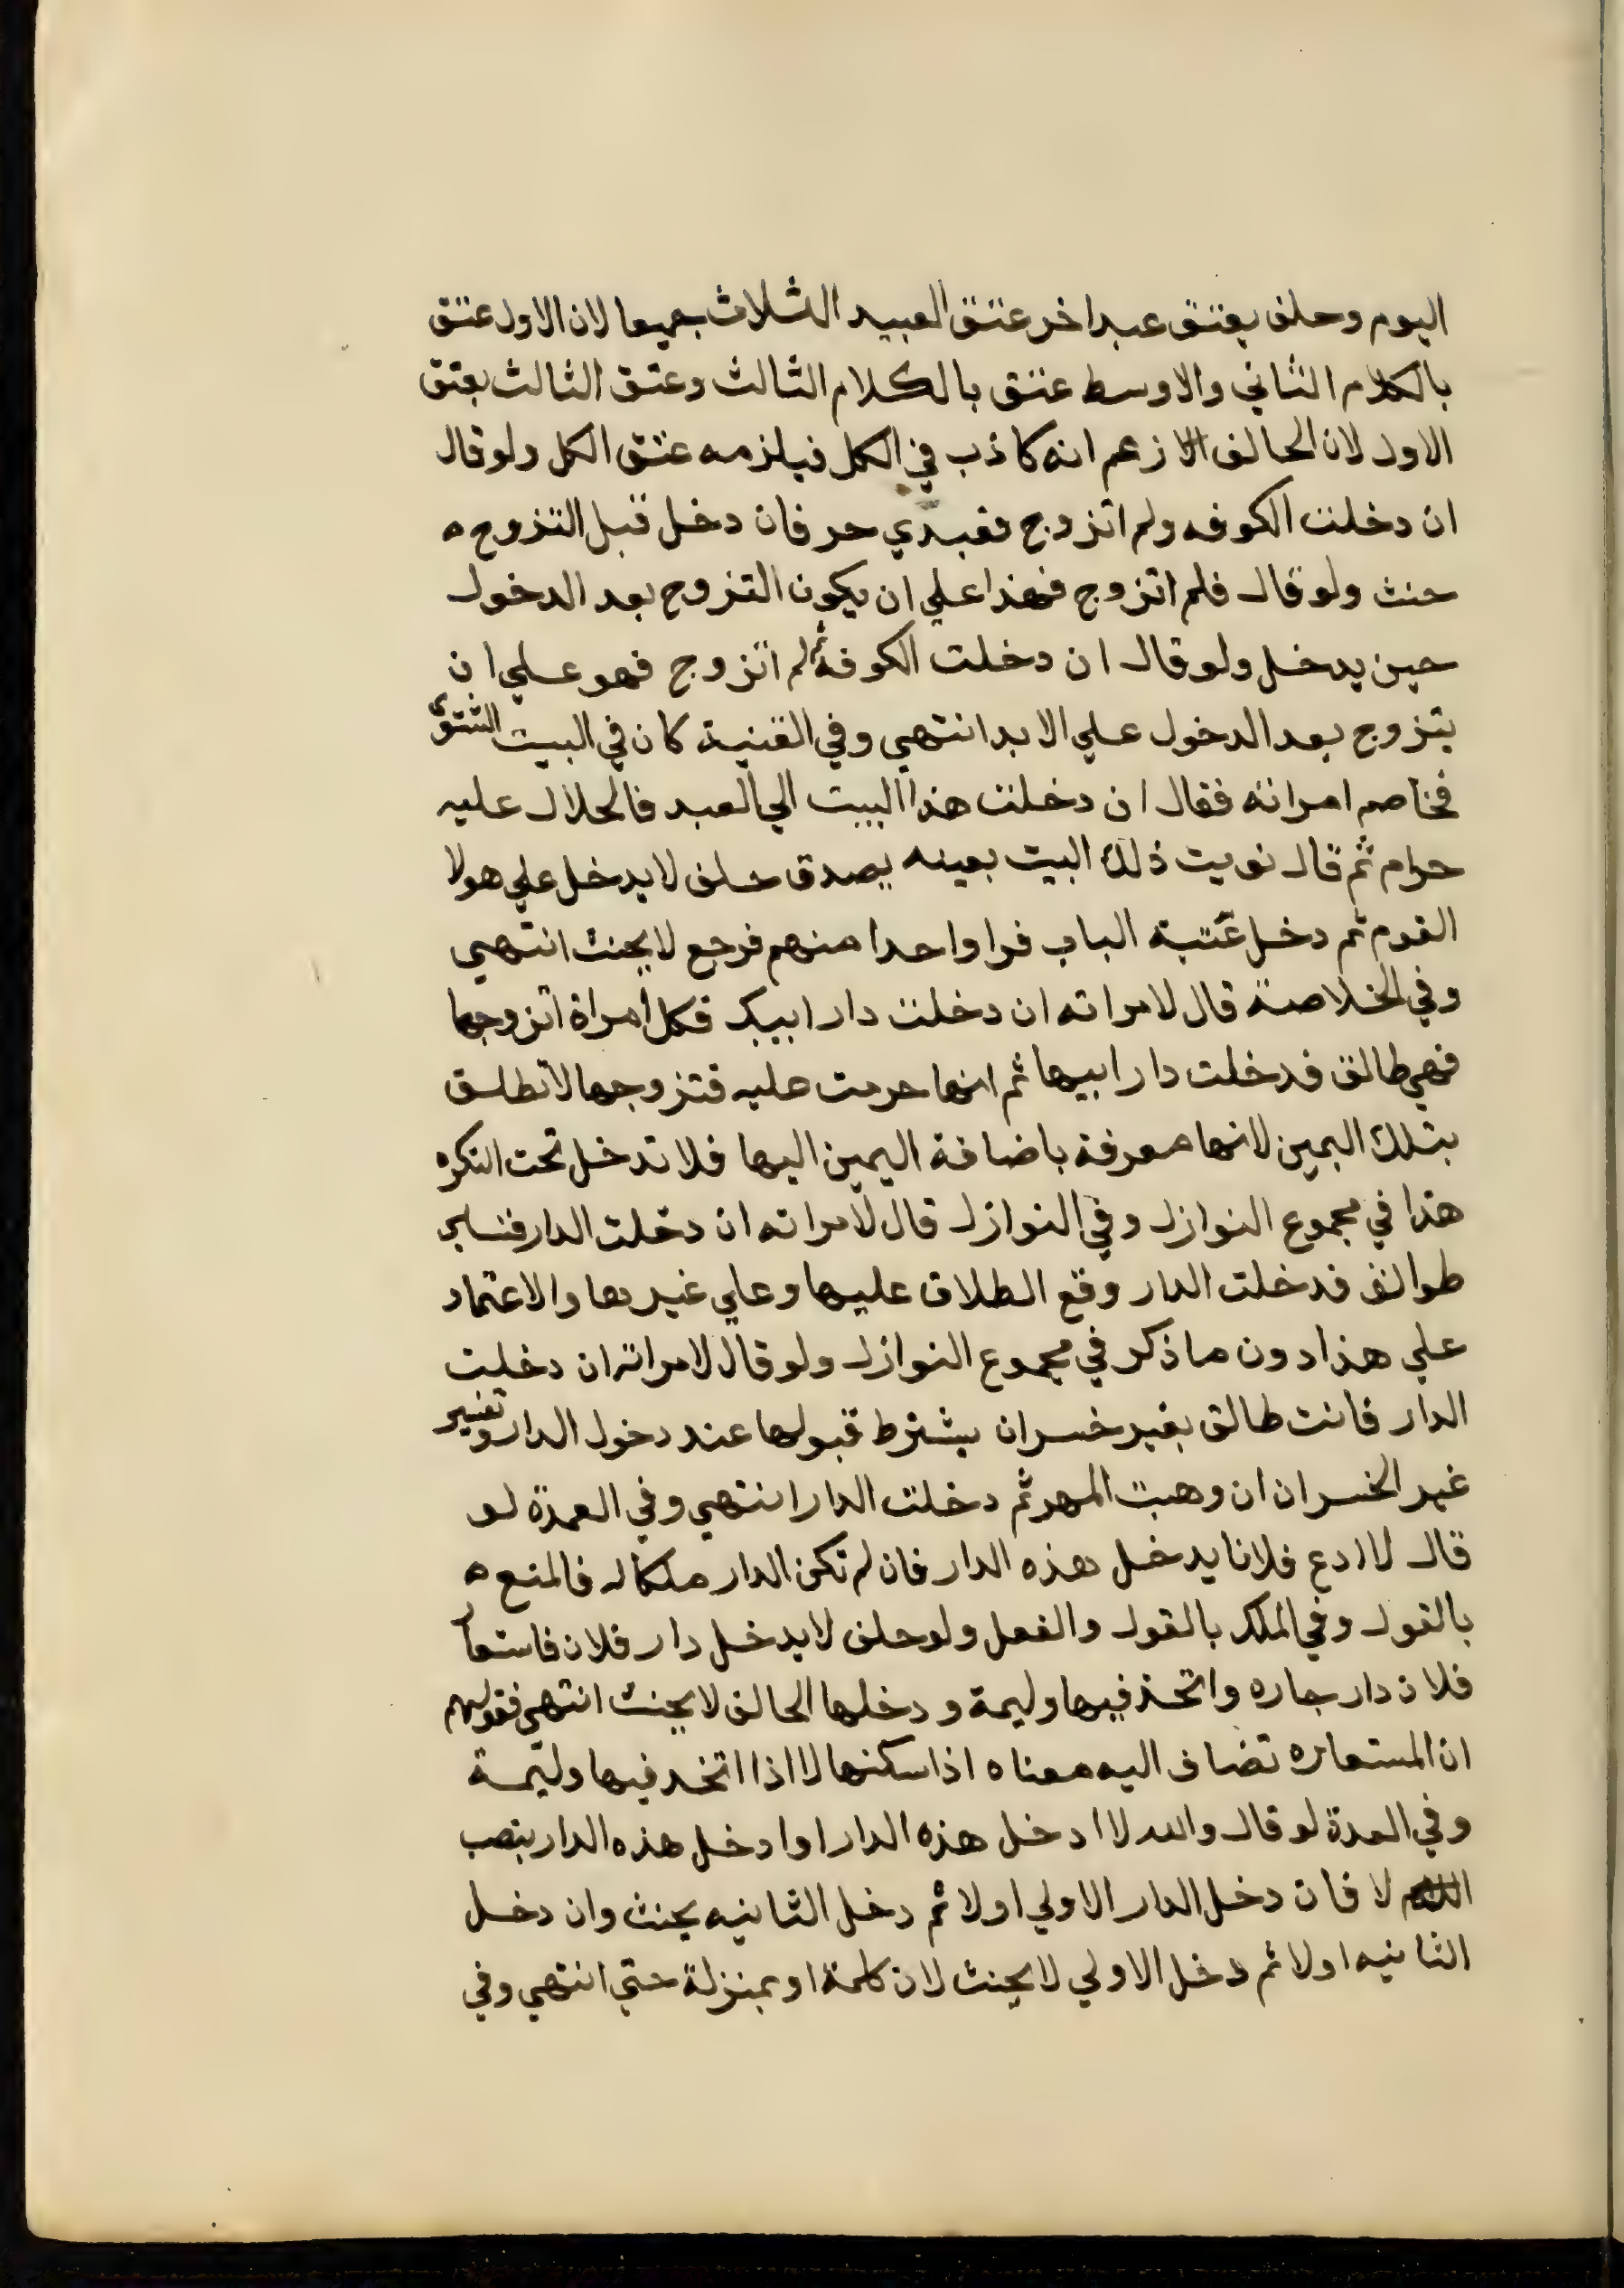 اليوم وحلف بعتق عبد اخر عتق العبيد الثلاث جميعا لان الاول عتق
بالكلام الثاني والاوسط عتق بالكلام الثالث وعتق الثالث بعتق
الاول لان الحالف زعم انه كاذب في الكل فيلزمه عتق الكل ولو قال
ان دخلت الكوفه ولم اتزوج فعبدي حر فان دخل قبل التزوج ه
حنث ولو قال فلم اتزوج فهذا علي ان يكون التزوج بعد الدخول
حين يدخل ولو قال ان دخلت الكوفة ثم لم اتزوج فهو علي ان
يتزوج بعد الدخول علي الابد انتهي وفي القنية كان في البيت الشتوي
فخاصم امراته فقال ان دخلت هذا البيت الي العيد فالحلال عليه
حرام ثم قال نويت ذلك البيت بعينه يصدق حلف لا يدخل علي هولا
القوم ثم دخل عتبة الباب فراي واحدا منهم فرجع لا يحنث انتهي
وفي الخلاصة قال لامراته ان دخلت دار ابيك فكل امراة اتزوجها
فهي طالق فدخلت دار ابيها ثم انها حرمت عليه فتزوجها لا تطلق
بتلك اليمين لانها معرفة باضافة اليمين اليها فلا تدخل تحت النكره
هذا في مجموع النوازل وفي النوازل قال لامراته ان دخلت الدار فنساي
طوالق فدخلت الدار وقع الطلاق عليها وعلي غيرها والاعتماد
علي هذا دون ما ذكر في مجموع النوازل ولو قال لامراته ان دخلت
الدار فانت طالق بغير خسران يشترط قبولها عند دخول الدار وتفسير
غير الخسران ان وهبت المهر ثم دخلت الدار انتهي وفي العمدة لو
قال لا ادع فلانا يدخل هذه الدار فان لم تكن الدار ملكا له فالمنع ه
بالقول وفي الملك بالقول والفعل ولو حلف لا يدخل دار فلان فاستعار
فلان دار جاره واتخذ فيها وليمة ودخلها الحالف لا يحنث انتهي فقولهم
ان المستعاره تضاف اليه معناه اذا سكنها لا اذا اتخد فيها وليمة
وفي العمدة لو قال والله لا ادخل هذه الدار او ادخل هذه الدار بنصب
اللام لا فان دخل الدار الاولي اولا ثم دخل الثانيه يحنث وان دخل
الثانيه اولا ثم دخل الاولي لا يحنث لان كلمة او بمنزلة حتي انتهي وفي